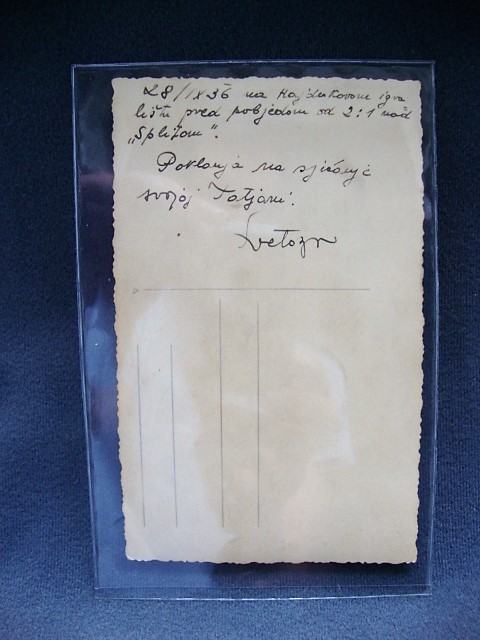 28/IX 36 na Hajdukovom igra
lištu pred pobjedom od 2:1 nad
„Splitom".
Poklanja na sjećanje
svojoj Tatjani.
Svetozar